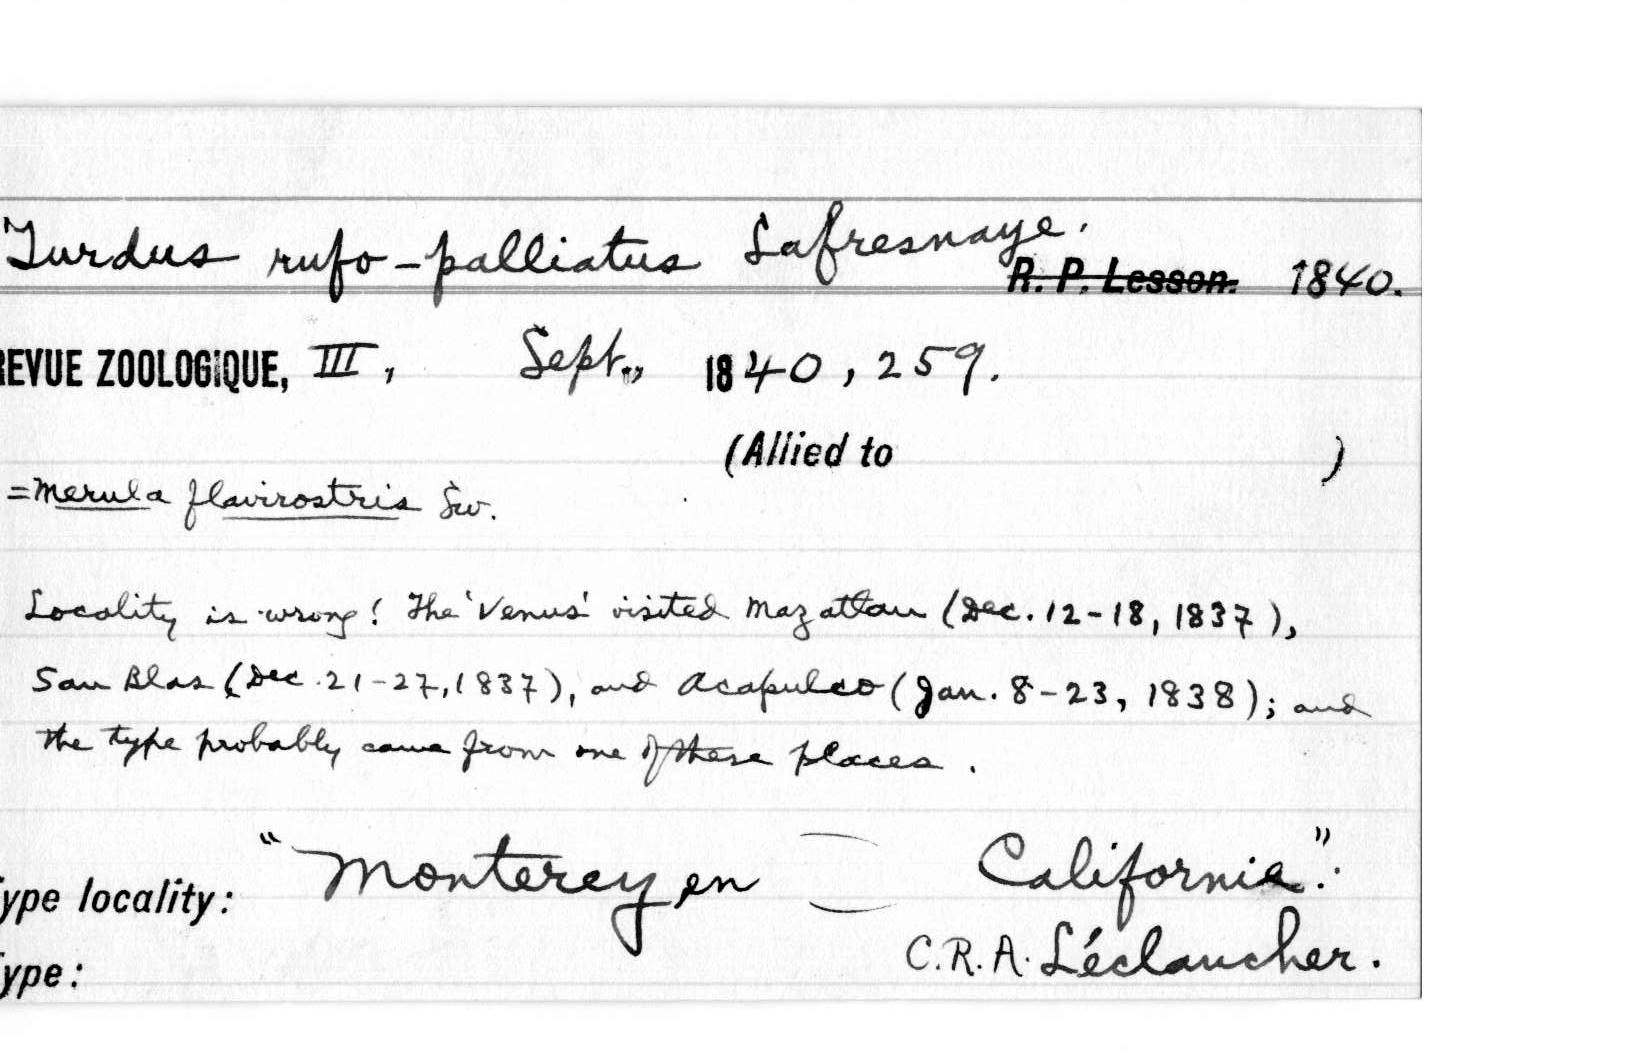 Turdus rufo-palliatus Lafresnaye.
R. P. Lesson. 1840.
REVUE ZOOLOGIQUE, III, Sept., 1840, 259.
(Allied to )
=Merula flavirostris Sw.
Locality is wrong! The 'Venus' visited Mazatlan (Dec. 12-18, 1837),
San Blas (Dec. 21-27, 1837), and Acapulco (Jan. 8-23, 1838); and
the type probably came from one of these places.
Type locality: "Monterey en California".
Type: C.R.A. Léclaucher.